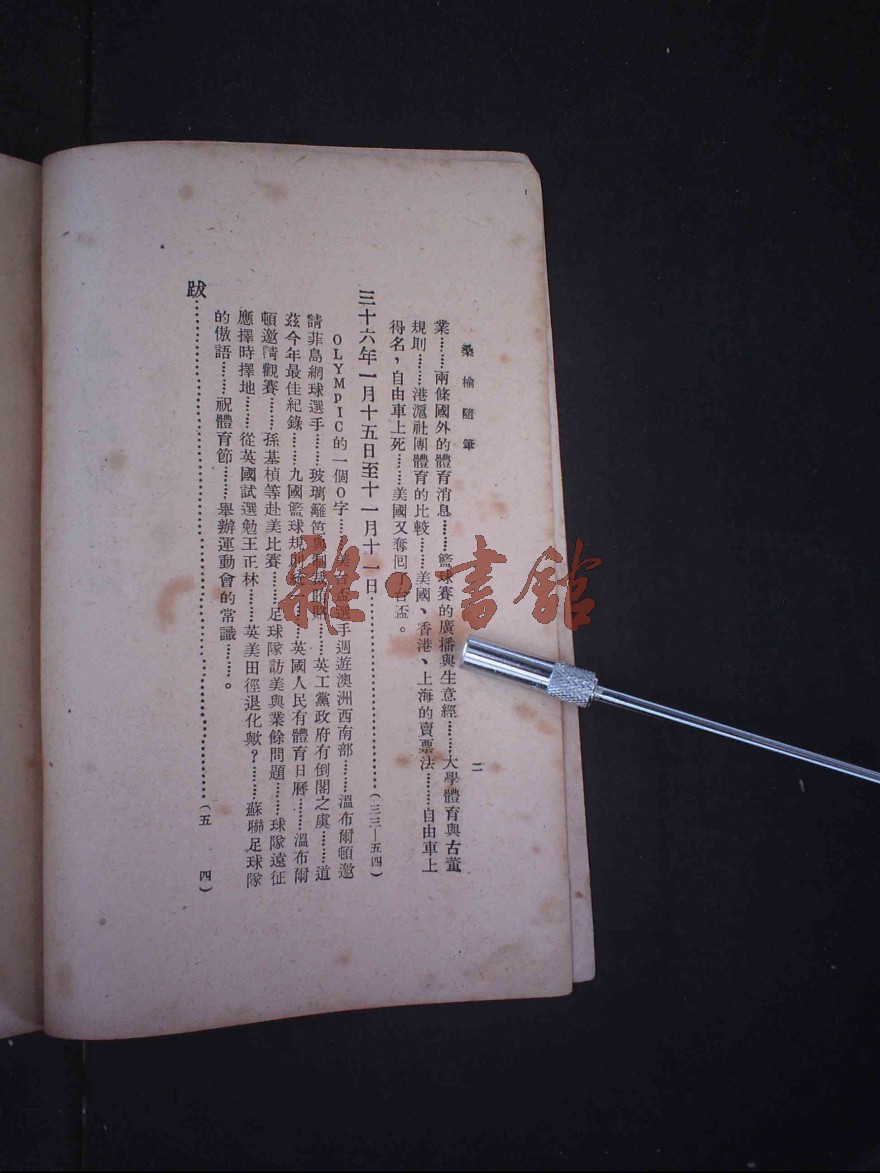 桑榆隨筆
二
業……兩條國外的體育消息……籃球賽的廣播與生意經……大學體育與古董
規則……港滬社團體育的比較……美國、香港、上海的賣票法……自由車上
得名，自由車上死……美國又奪回了台盃。
三十六年一月十五日至十一月十一日……(三三—五四)
OLYMPIC的一個O字……美台盃選手週遊澳洲西南部……溫布爾頓邀
請菲島網球選手……玻璃籬笆與制裁賭賂……英工黨政府有倒閣之虞……道
茲今年最佳紀錄……九國籃球規則統一……英國人民有體育日曆……溫布爾
頓邀請觀賽……孫基楨等赴美比賽……足球隊訪美與業餘問題……球隊遠征
應擇時擇地……從英國試選勉王正林……英美田徑退化歟？……蘇聯足球隊
的傲語……祝體育節……舉辦運動會的常識……。
跋……(五四)
雜·書館